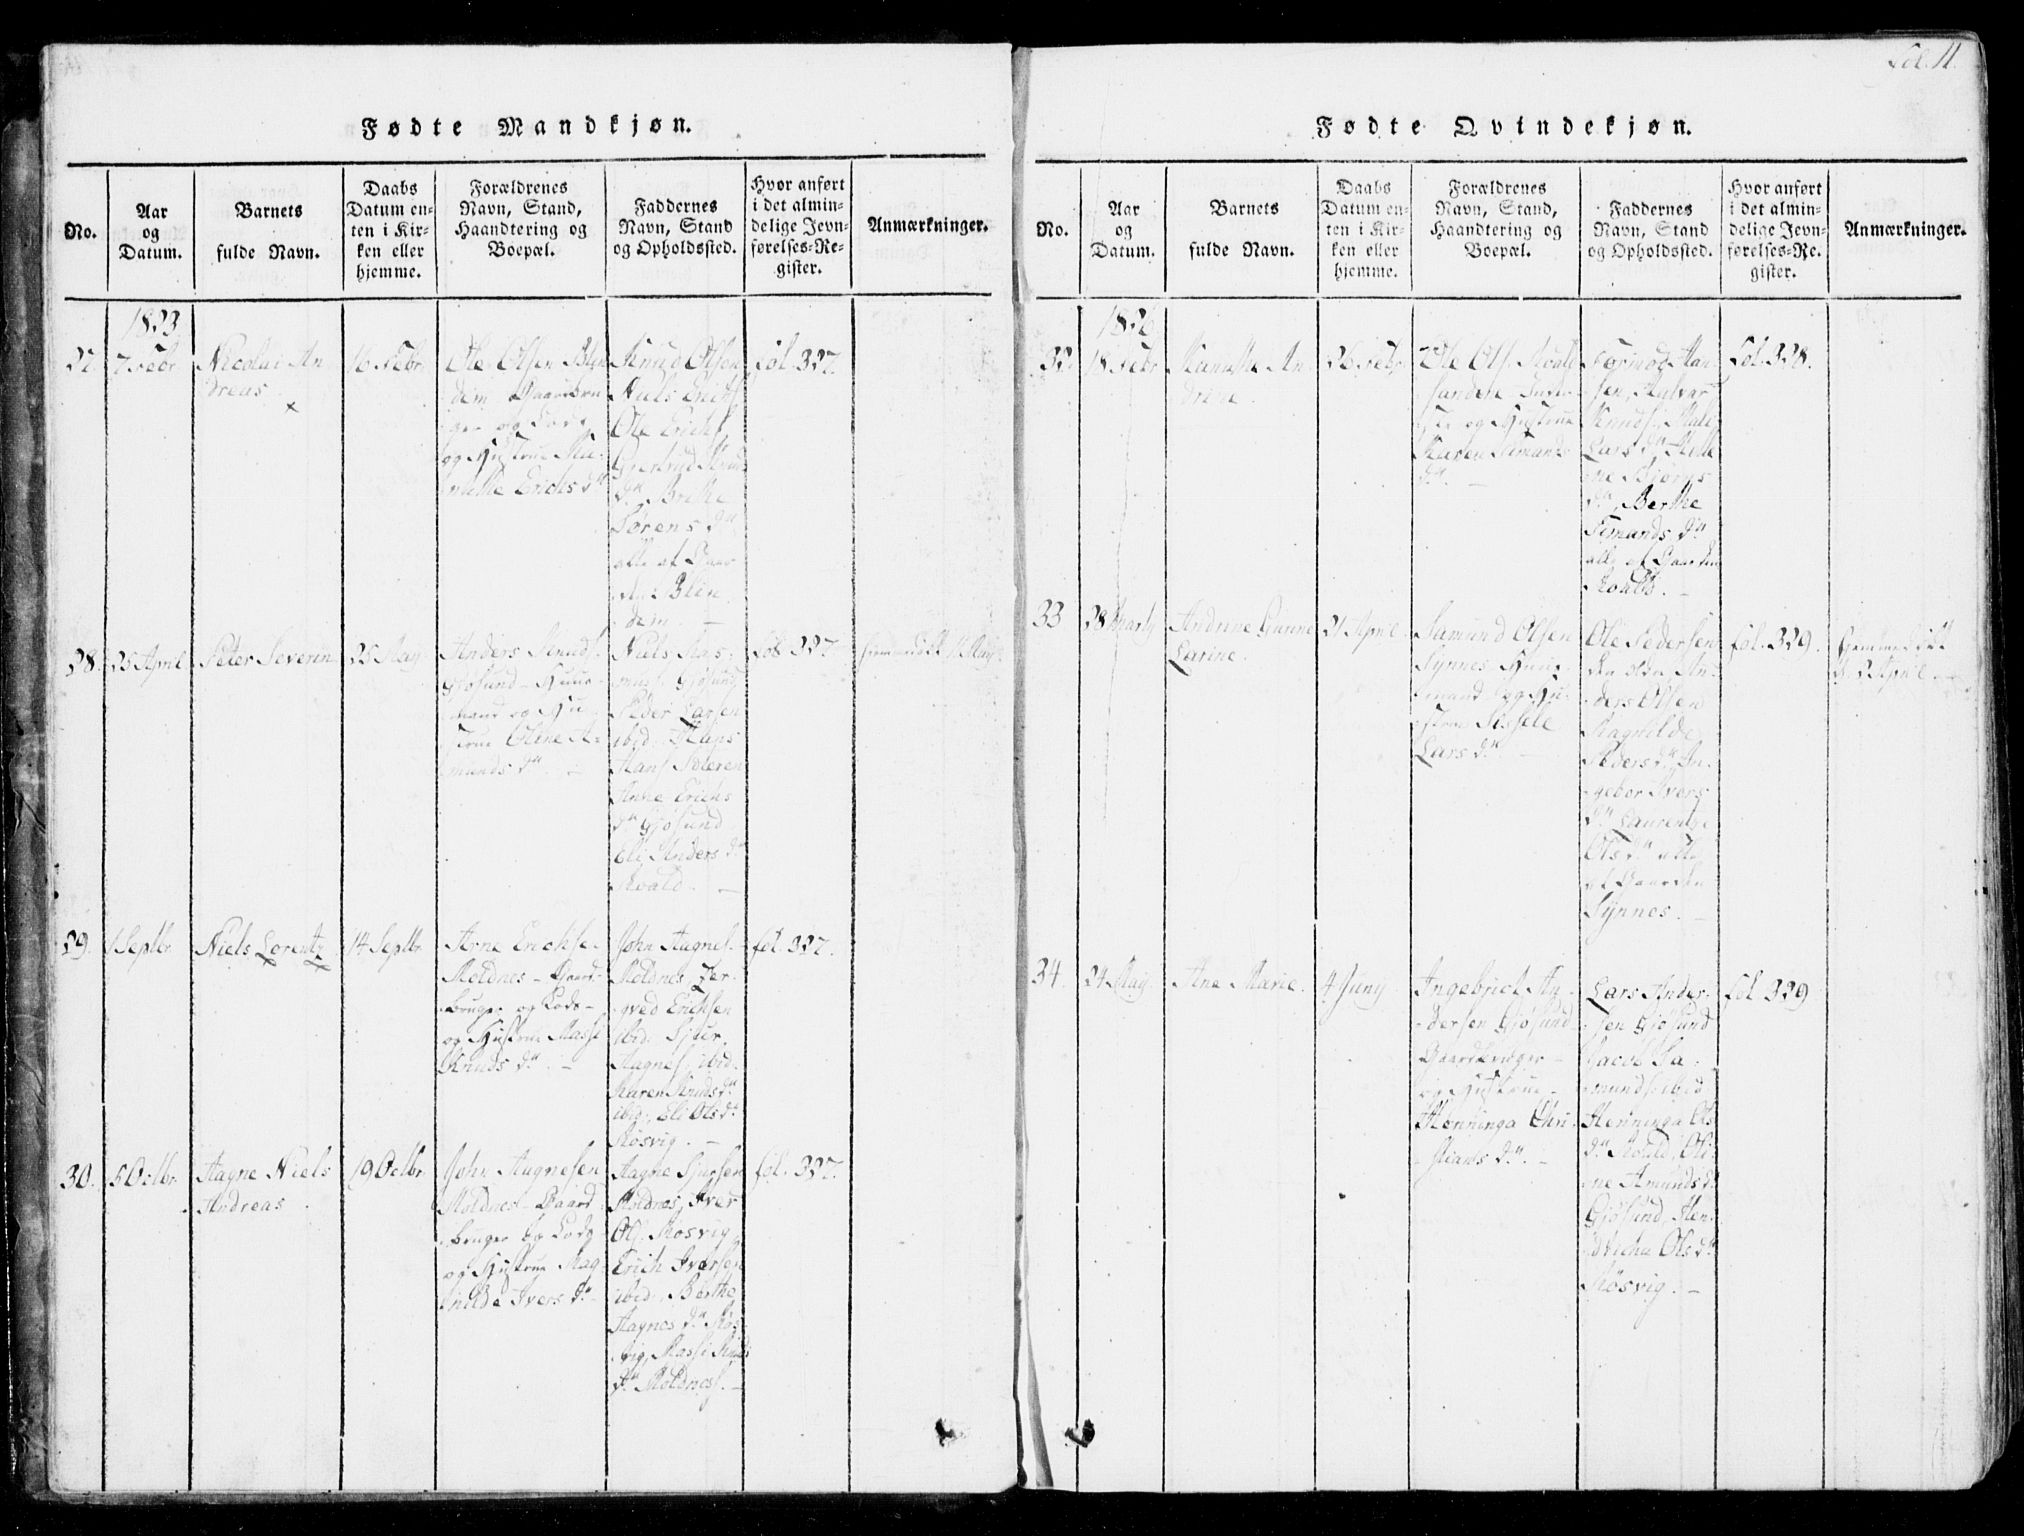 Fol. 11.
Fødte Mandkjøn.
No.
Aar
og
Datum.
Barnets
fulde Navn.
Daabs
Datum en-
ten i Kir-
ken eller
hjemme.
Forældrenes
Navn, Stand,
Haandtering og
Boepæl.
Faddernes
Navn, Stand
og Opholdssted.
Hvor anført
i det almin-
delige Jevn-
førelses-Re-
gister.
Anmærkninger.
1823
27.
7 Febr
Nicolai An
dreas
16 Febr.
Ole Olsen Blin
dem Gaardbru
ger og
og Hustrue
Erichs dr
Knud Olsen
Niels Erichs.
Ole Erichs.
Gjertrud Knuds
dr Brithe
Sørens dr
alle af Gaar
den Blin
dem
fol. 327.
28.
25 April
Peter Severin
25 May
Anders Knuds.
Gjøsund - Huus-
mand og Hu-
strue Oline A-
munds dr. -
Niels Ras-
mus. Gjøsund
Peder Larsen
ibid. Hans
Hans.
Anne Erichs
dr Gjøsund
Eli Anders dr
Roald. -
fol. 327.
hjemmedøbt May
29.
Septbr
Niels Lorentz
14 Septbr
Arne Erichse
Moldnes - Gaard-
bruger og Lods-
og Hustrue Masse
Knuds dr. -
John Aagnes.
Moldnes
Erichsen
ibid. Sjur
Aagnes. ibid.
Karen Knuds dr
ibid. Eli Ols dr
Røsvig. -
fol. 327.
30.
5 Octbr.
Aagne Niels
Andreas
19 Octbr
John Aagnesen
Moldnes - Gaard
bruger og Lods
og Hustrue Rag-
nilde Ivers dr -
Aagne Sjursen
Moldnes, Iver
Ols. Røsvig
Erich Iversen
ibid. Berthe
Aagnes dr Røs
vig, Masse Knuds
dr Moldnes. -
fol. 327.
Fødte Qvindekjøn.
No.
Aar
og
Datum.
Barnets
fulde Navn.
Daabs
Datum en-
ten i Kir-
ken eller
hjemme.
Forældrenes
Navn, Stand,
Haandtering og
Boepæl.
Faddernes
Navn, Stand
og Opholdssted.
Hvor anført
i det almin-
delige Jevn-
førelses-Re-
gister.
Anmærkninger.
1826
32
18 Febr
An
drine.
26 Febr
Ole Ols. Roald
sandene
og Hustrue
Karen
dr. -
Tormod Han
sen, Halvar
Knuds.,
Lars dr
ne Bjørns
dr, Berthe
dr
alle af Gaarden
Roald. -
Fol. 328.
33
28 Marty
Andrine Gurine
Larine.
21 April.
Samund Olsen
Synnes Huus-
mand og Hu-
strue Sissele
Lars dr. -
Ole Pedersen
den Anders Olsen
Ragnilde
Peders dr, In-
gebor Ivers
dr Laurentze
Ols dr alle
af Gaarden
Synnes. -
fol. 329.
hjemmedøbt
d. 2 April
34.
24 May.
Ane Marie.
4 Juny
Ingebrict An-
dersen Gjøsund
Gaardbruger -
og Hustrue -
Henninga Chri-
stians dr. -
Lars Ander-
sen Gjøsund
Jacob Sa-
munds. ibid
Henninga Ols
dr Roald, Oli-
ne Amunds dr
Gjøsund, Hen-
dricha Ols dr
Røsvig. -
fol. 329